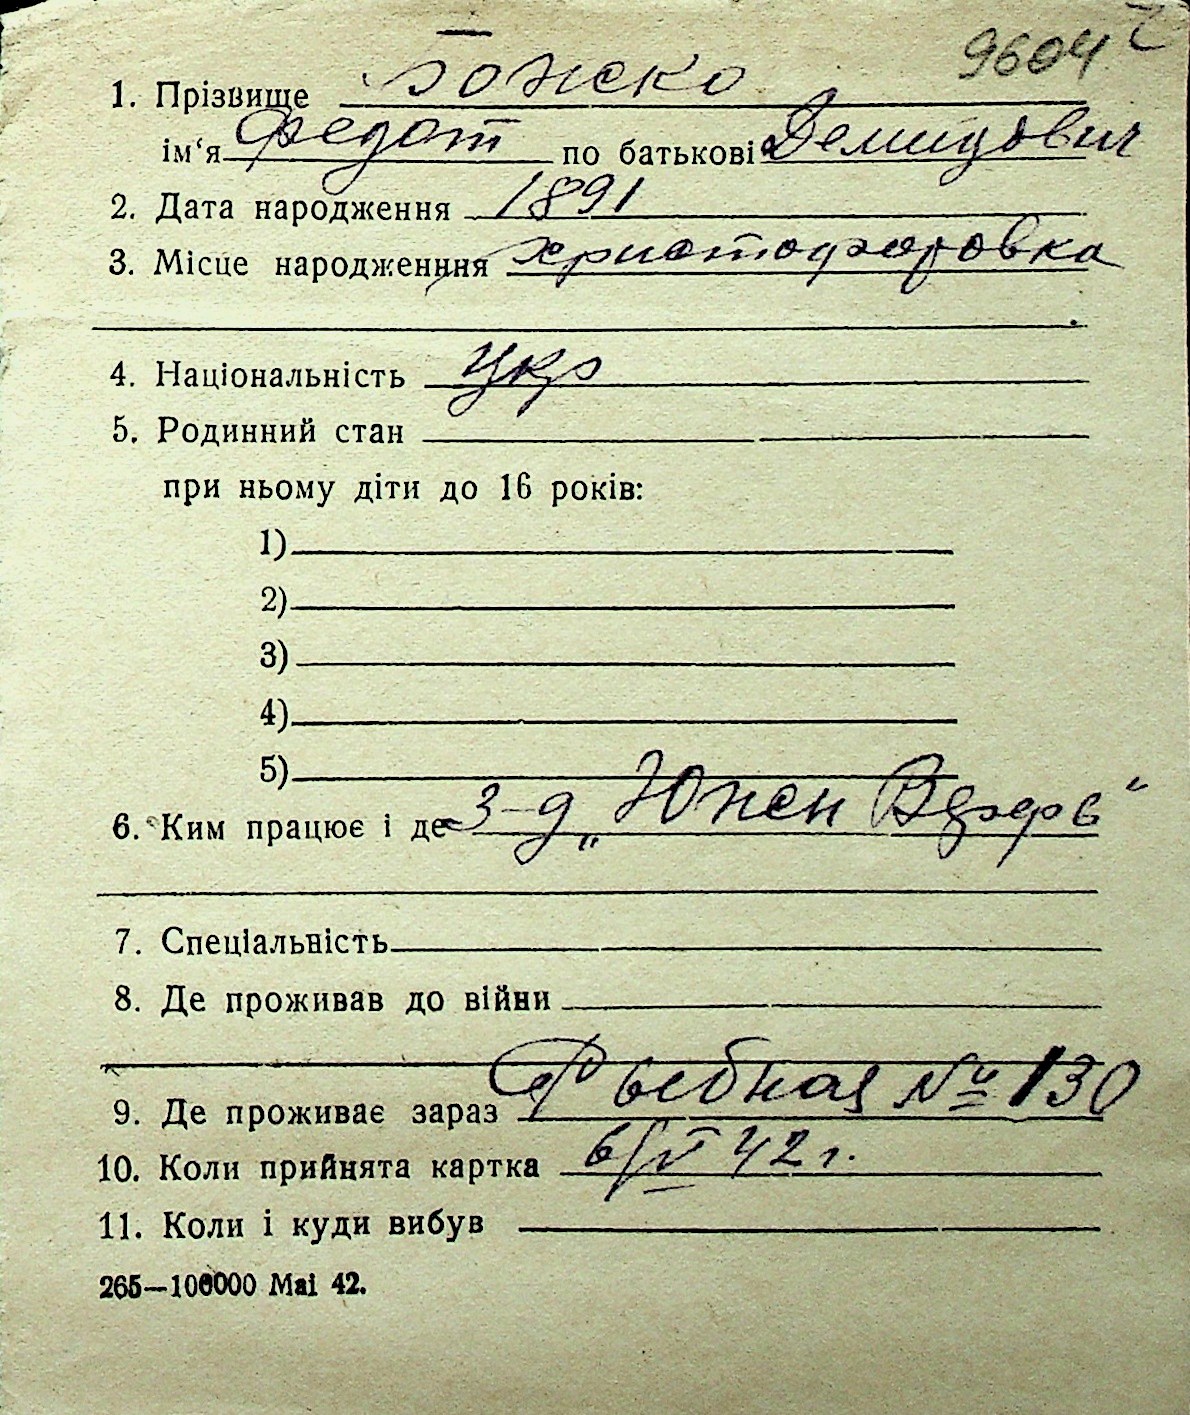 9604
1. Прізвище Божко
ім‘я Федот по батькові Демидович
2. Дата народження 1891
3. Місце народженння Христофоровка
4. Національність Укр
5. Родинний стан
при ньому діти до 16 років:
1)
2)
3)
4)
5)
6. Ким працює і де З-д „Южен Верфь“
7. Спеціальність
8. Де проживав до війни
9. Де проживає зараз Рыбная № 130
10. Коли прийнята картка 6/V 42 г.
11. Коли і куди вибув
265—100000 Маі 42.